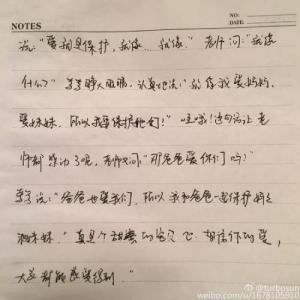 NOTES
NO:
DATE:
说:"爱就是保护,就像...就像."老师问:"就像
什么?"认真地说:"就像我爱妈妈,
爱妹妹,所以我要保护她们!"哇哦!这句话让老
师都感动了呢,老师又问:"那爸爸爱你们吗?"
说:"爸爸也爱我们,所以我和爸爸一起保护妈妈
和妹妹."真是个甜蜜的宝贝,相信你的爱,
大家都能感受得到."
@turbosun
weibo.com/u/1678105910